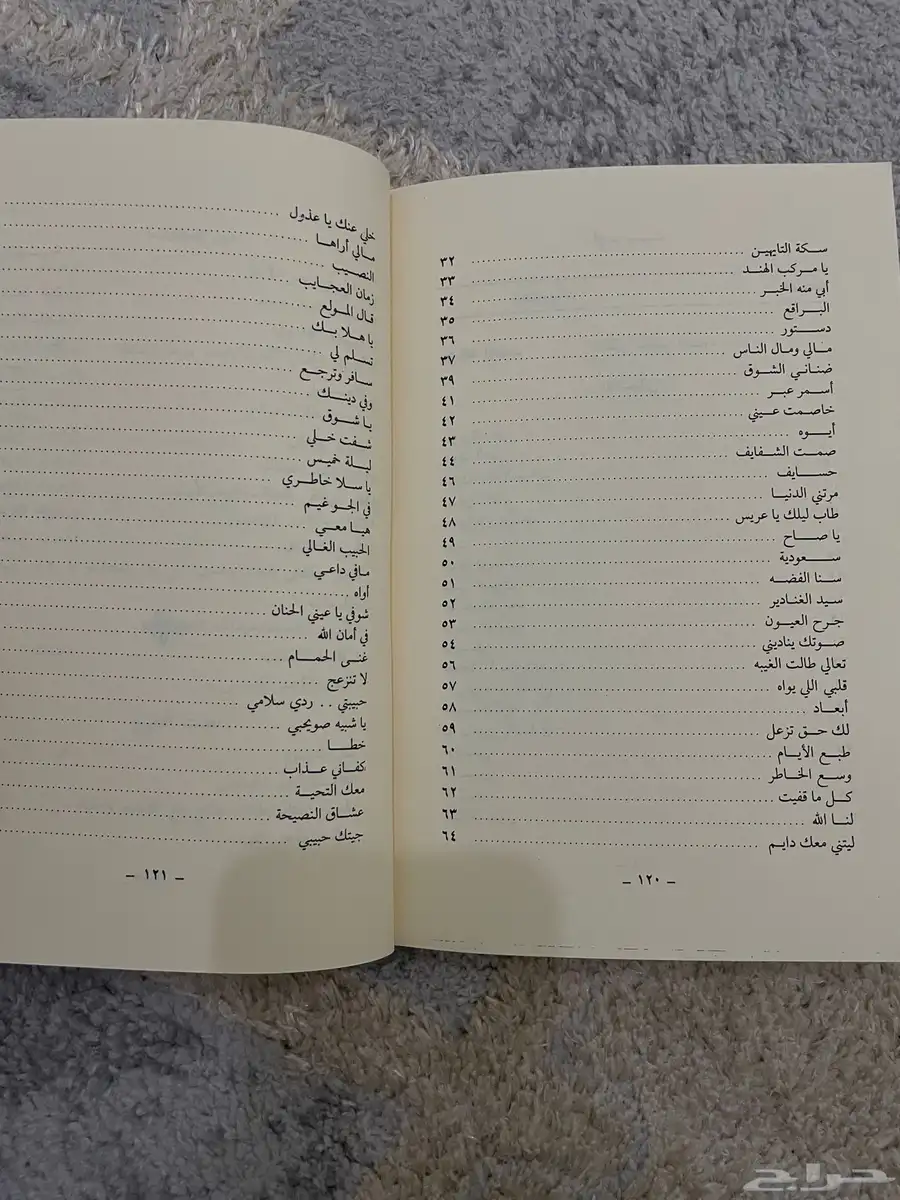 سكة التايهين ................ ٣٢
يا مركب الهند ................ ٣٣
أبي منه الخبر ................ ٣٤
البراقع ................ ٣٥
دستور ................ ٣٦
مالي ومال الناس ................ ٣٧
ضناني الشوق ................ ٣٩
أسمر عبر ................ ٤١
خاصمت عيني ................ ٤٢
أيوه ................ ٤٣
صمت الشفايف ................ ٤٤
حسايف ................ ٤٦
مرتني الدنيا ................ ٤٧
طاب ليلك يا عريس ................ ٤٨
يا صاح ................ ٤٩
سعودية ................ ٥٠
سنا الفضه ................ ٥١
سيد الغنادير ................ ٥٢
جرح العيون ................ ٥٣
صوتك يناديني ................ ٥٤
تعالي طالت الغيبه ................ ٥٦
قلبي اللي يواه ................ ٥٧
أبعاد ................ ٥٨
لك حق تزعل ................ ٥٩
طبع الأيام ................ ٦٠
وسع الخاطر ................ ٦١
كل ما قفيت ................ ٦٢
لنا الله ................ ٦٣
ليتني معك دايم ................ ٦٤
– ١٢٠ –
خلي عنك يا عذول ................
مالي أراها ................
النصيب ................
زمان العجايب ................
قال المولع ................
يا هلا بك ................
تسلم لي ................
سافر وترجع ................
وفي دينك ................
يا شوق ................
شفت خلي ................
ليلة خميس ................
يا سلا خاطري ................
في الجو غيم ................
هيا معي ................
الحبيب الغالي ................
مافي داعي ................
أواه ................
شوفي يا عيني الحنان ................
في أمان الله ................
غنى الحمام ................
لا تنزعج ................
حبيبتي . . ردي سلامي ................
يا شبيه صويحبي ................
خطا ................
كفاني عذاب ................
معك التحية ................
عشاق النصيحة ................
جيتك حبيبي ................
– ١٢١ –
حراج